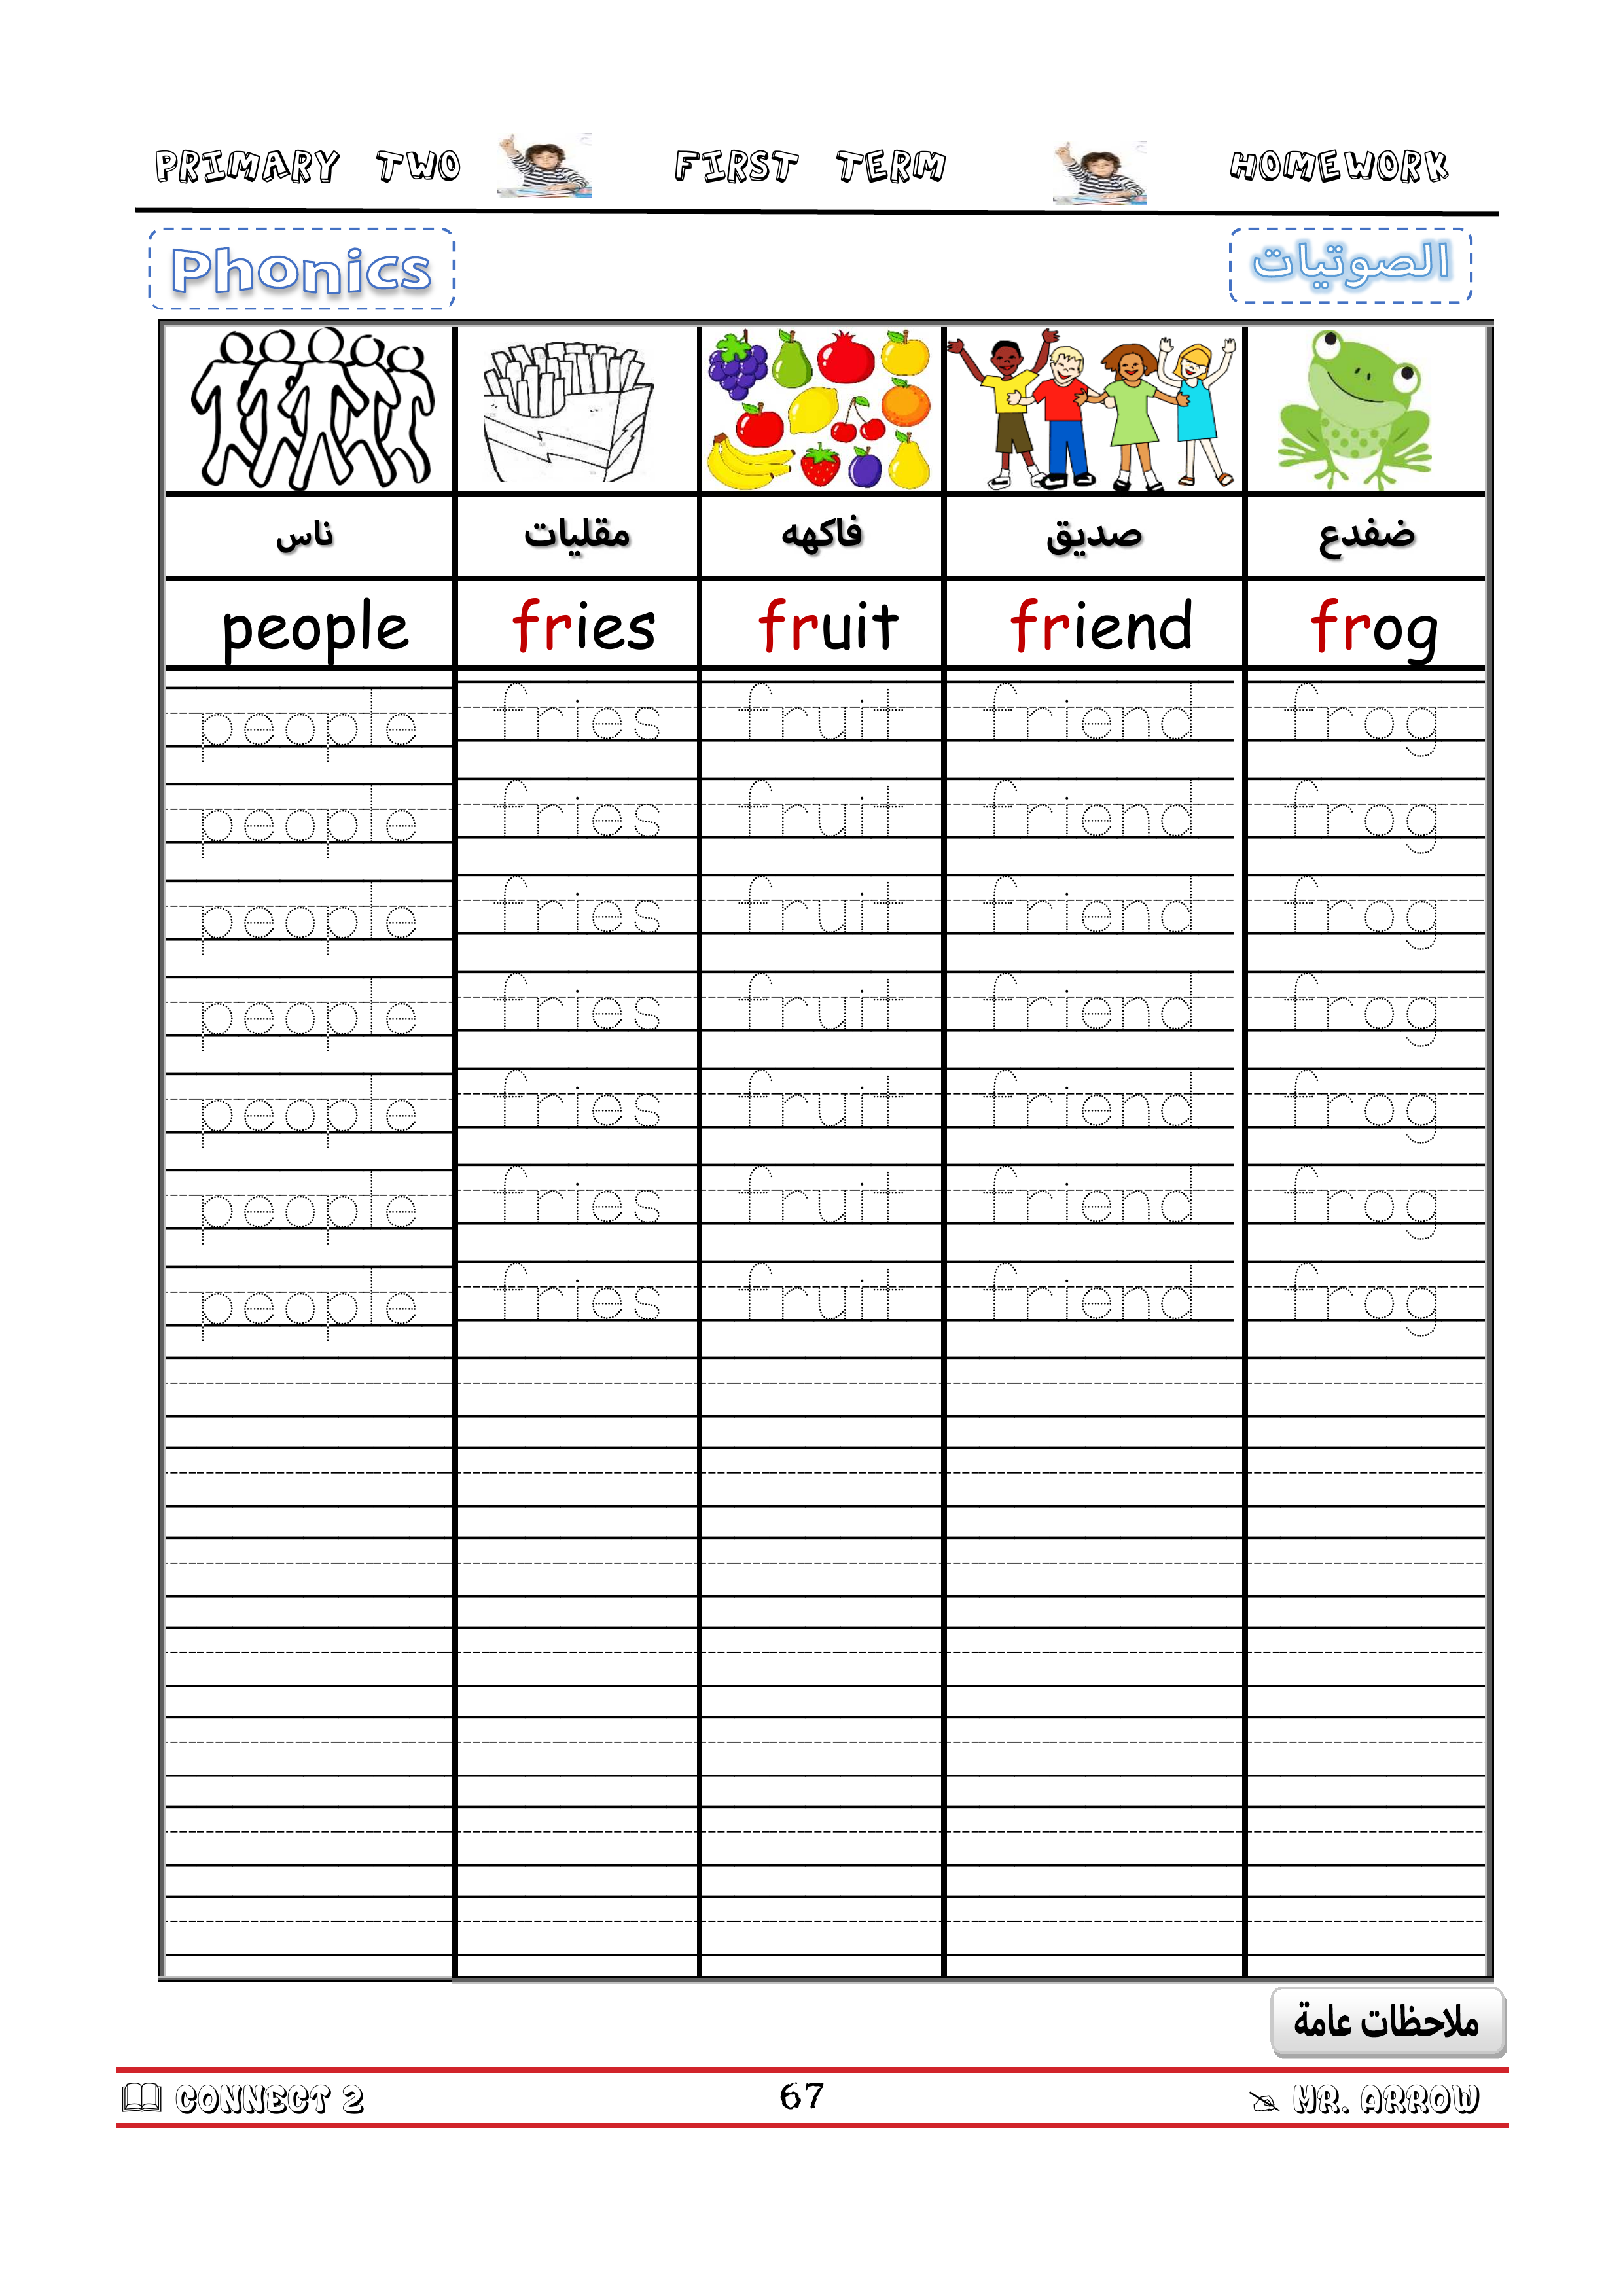 PRIMARY TWO FIRST TERM HOMEWORK
Phonics الصوتيات
ناس مقليات فاكهه صديق ضفدع
people fries fruit friend frog
people fries fruit friend frog
people fries fruit friend frog
people fries fruit friend frog
people fries fruit friend frog
people fries fruit friend frog
people fries fruit friend frog
people fries fruit friend frog
ملاحظات عامة
CONNECT 2 67 MR. ARROW